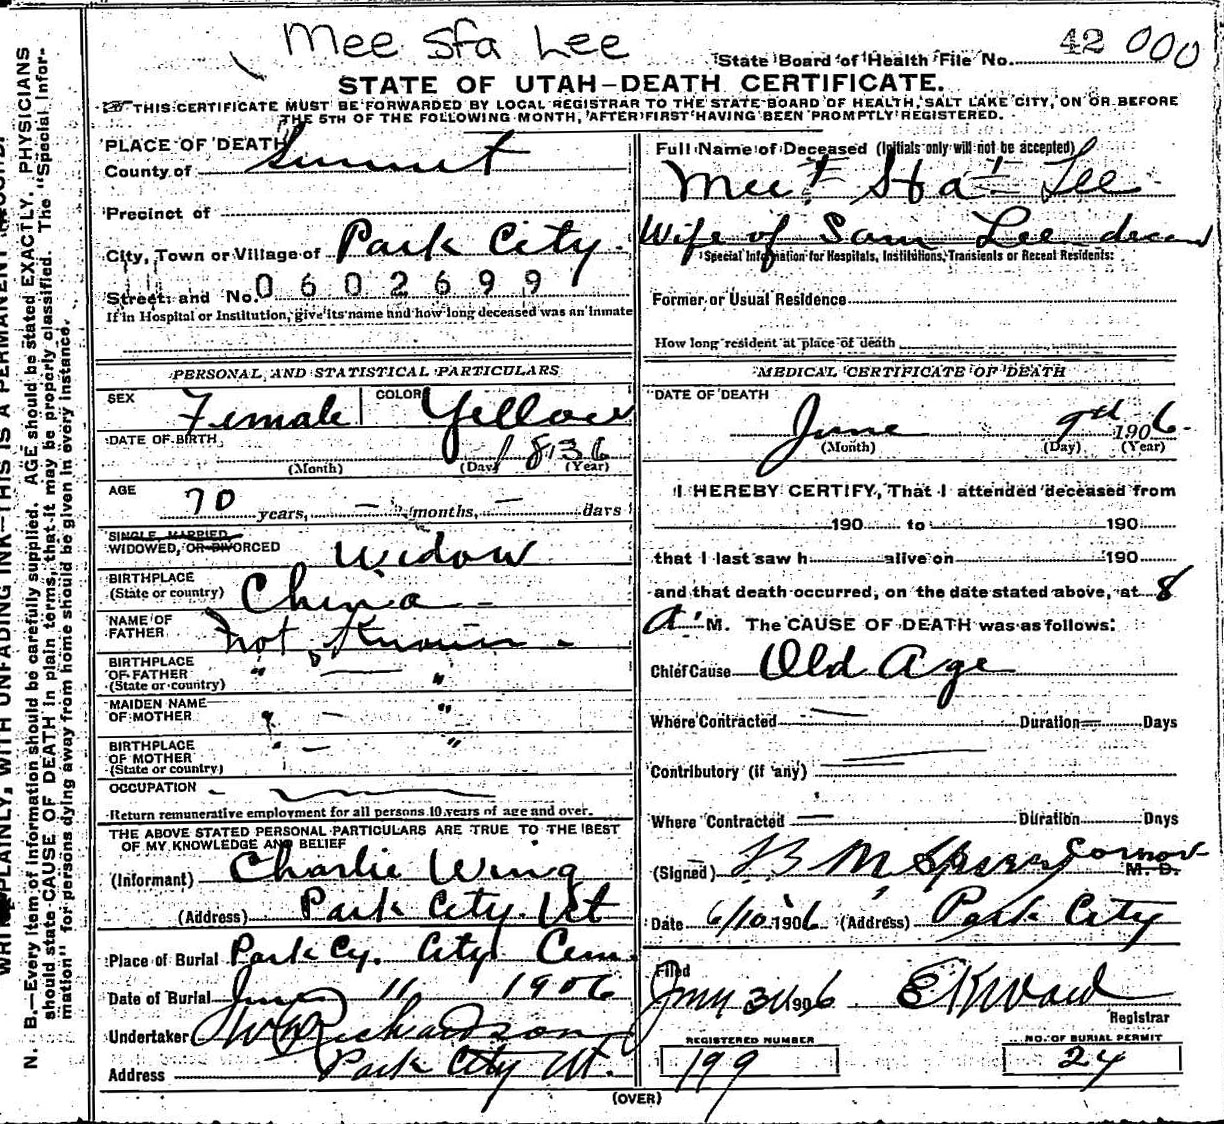 Mee Sta Lee
State Board of Health File No. 42 000
STATE OF UTAH—DEATH CERTIFICATE.
THIS CERTIFICATE MUST BE FORWARDED BY LOCAL REGISTRAR TO THE STATE BOARD OF HEALTH, SALT LAKE CITY, ON OR BEFORE
THE 5TH OF THE FOLLOWING MONTH, AFTER FIRST HAVING BEEN PROMPTLY REGISTERED.
PLACE OF DEATH
County of Summit
Precinct of
City, Town or Village of Park City.
Street and No. 0602699
If in Hospital or Institution, give its name and how long deceased was an inmate
PERSONAL AND STATISTICAL PARTICULARS
SEX Female COLOR Yellow
DATE OF BIRTH 1836
(Month) (Day) (Year)
AGE 70 years, — months, — days
SINGLE, MARRIED,
WIDOWED, OR DIVORCED Widow
BIRTHPLACE
(State or country) China -
NAME OF
FATHER Not Known -
BIRTHPLACE
OF FATHER " — "
(State or country)
MAIDEN NAME
OF MOTHER " — "
BIRTHPLACE
OF MOTHER " — "
(State or country)
OCCUPATION -
Return remunerative employment for all persons 10 years of age and over.
THE ABOVE STATED PERSONAL PARTICULARS ARE TRUE TO THE BEST
OF MY KNOWLEDGE AND BELIEF
(Informant) Charlie Wing
(Address) Park City. Ut
Place of Burial Park Cy. City Cem.
Date of Burial June 11 1906
Undertaker Richardson
Address Park City Ut.
Full Name of Deceased (Initials only will not be accepted)
Mee Sta Lee
Wife of Sam Lee
Special Information for Hospitals, Institutions, Transients or Recent Residents:
Former or Usual Residence
How long resident at place of death
MEDICAL CERTIFICATE OF DEATH
DATE OF DEATH
June 9 1906.
(Month) (Day) (Year)
I HEREBY CERTIFY, That I attended deceased from
190 to 190
that I last saw h alive on 190
and that death occurred, on the date stated above, at 8
A. M. The CAUSE OF DEATH was as follows:
Chief Cause Old Age
Where Contracted — Duration — Days
Contributory (if any)
Where Contracted — Duration Days
(Signed) B M M.D.
Date 6/10 1906 (Address) Park City
Filed 1906 E K Ward
Registrar
REGISTERED NUMBER
199
NO. OF BURIAL PERMIT
24
(OVER)
N. B.—Every item of information should be carefully supplied. AGE should be stated EXACTLY. PHYSICIANS
should state CAUSE OF DEATH in plain terms, that it may be properly classified. The "Special Infor-
mation" for persons dying away from home should be given in every instance.
PLAINLY, WITH UNFADING INK—THIS IS A PERMANENT